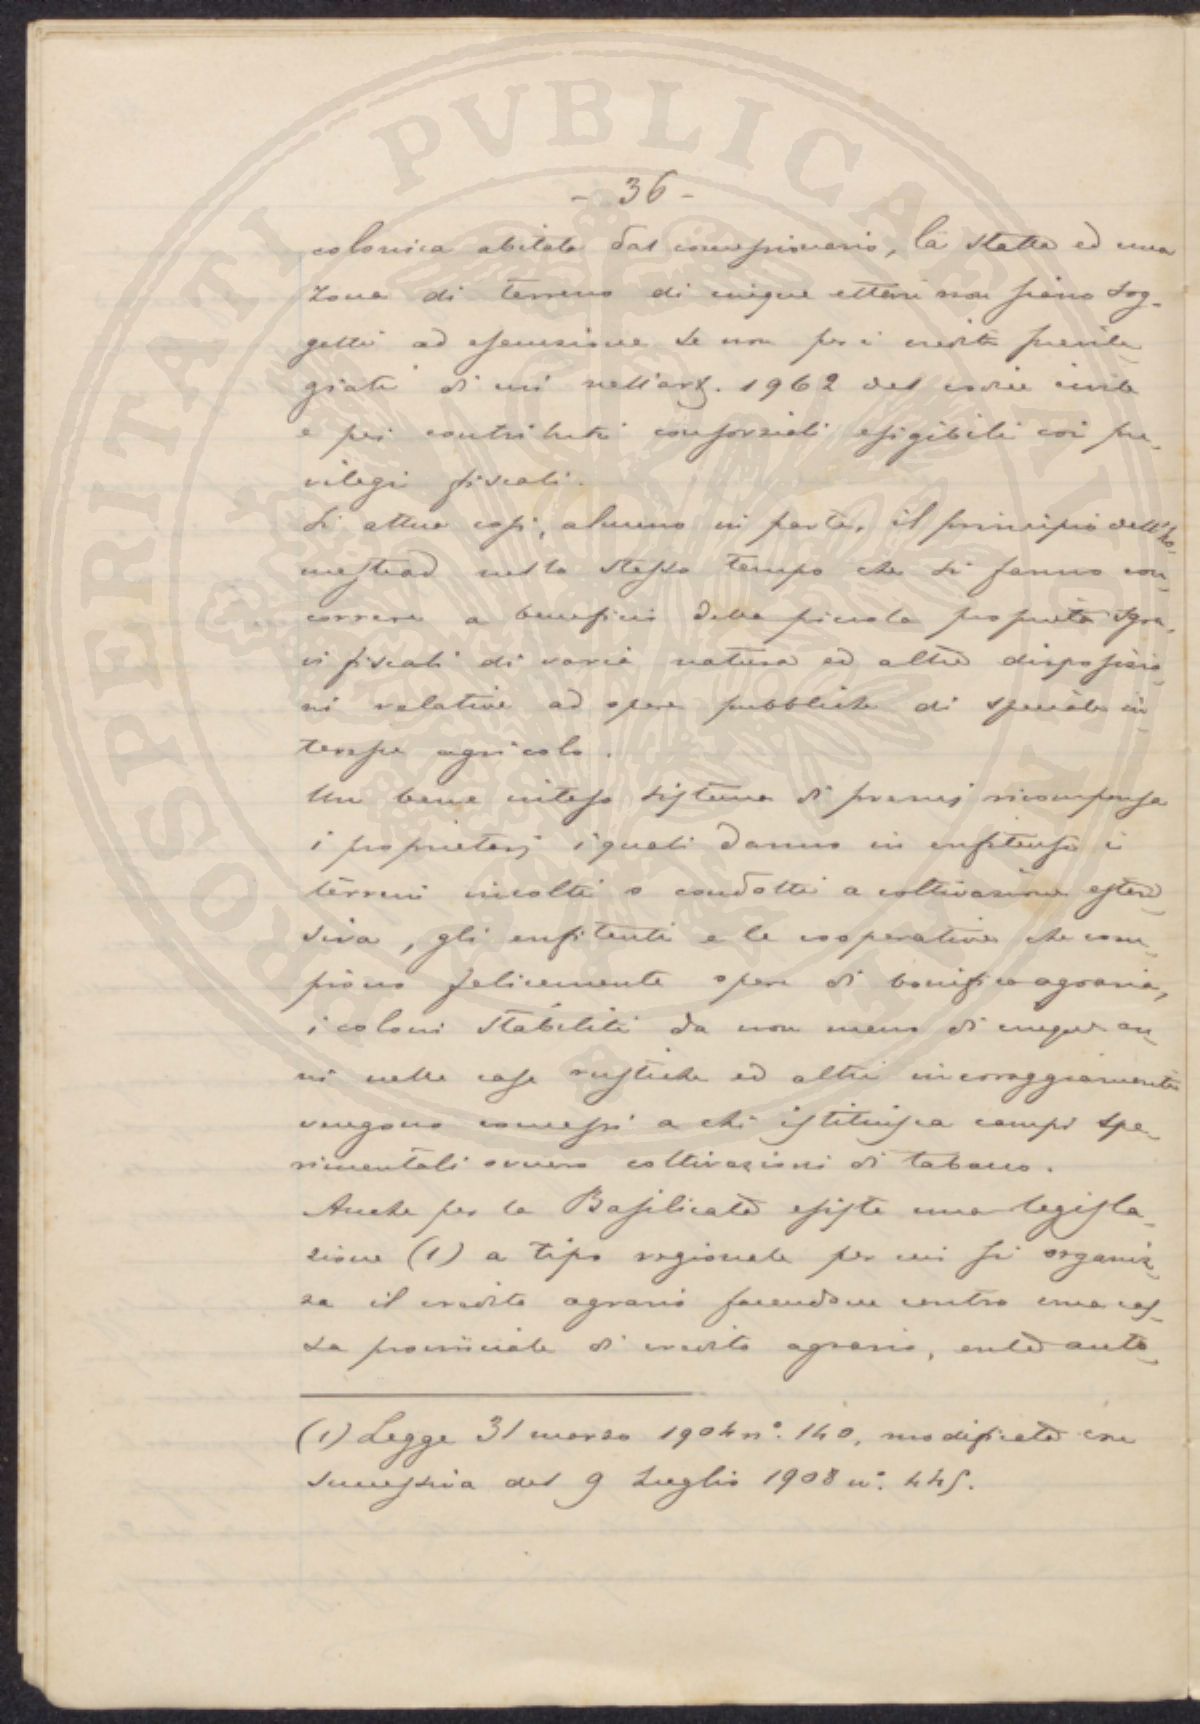 PROSPERITATI PVBLICAE AVGENDAE
- 36 -
colonica abitata dal concessionario, la stalla ed una
zona di terreno di cinque ettari non siano sog-
getti ad esecuzione se non per i crediti privile-
giati di cui nell'art. 1962 del codice civile
e pei contributi consorziali esigibili coi pri-
vilegi fiscali.
Si attua così, almeno in parte, il principio dell'ho-
mestead nello stesso tempo che si fanno con-
correre a beneficio della piccola proprietà sgra-
vi fiscali di varia natura ed altre disposizio-
ni relative ad opere pubbliche di speciale in-
teresse agricolo.
Un bene inteso sistema di premi ricompensa
i proprietarj i quali danno in enfiteusi i
terreni incolti o condotti a coltivazione esten-
siva, gli enfiteuti e le cooperative che com-
piono felicemente opere di bonifica agraria,
i coloni stabiliti da non meno di cinque an-
ni nelle case rustiche ed altri incoraggiamenti
vengono concessi a chi istituisca campi spe-
rimentali ovvero coltivazioni di tabacco.
Anche per la Basilicata esiste una legisla-
zione (1) a tipo regionale per cui si organiz-
za il credito agrario facendone centro una cas-
sa provinciale di credito agrario, ente auto-
(1) Legge 31 marzo 1904 n°. 140, modificata con
successiva del 9 Luglio 1908 n°. 445.